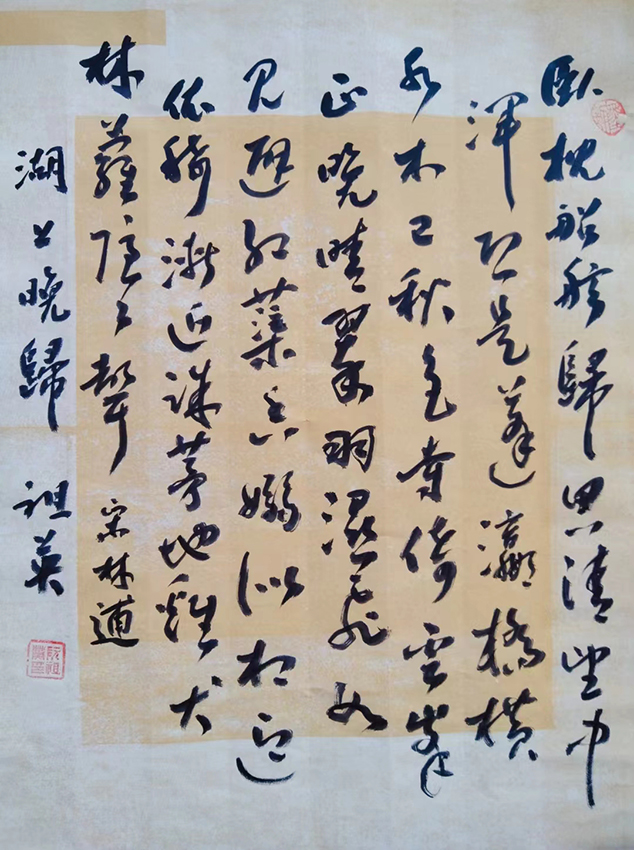 臥枕船舷歸思清望中
渾恐是蓬瀛橋橫
水木已秋色寺倚雲峯
正晚晴翠羽濕飛如
見避紅蕖香嫋似相迎
依稀漸近誅茅地雞犬
林蘿隱々聲 宋林逋
湖上晚歸 祖英